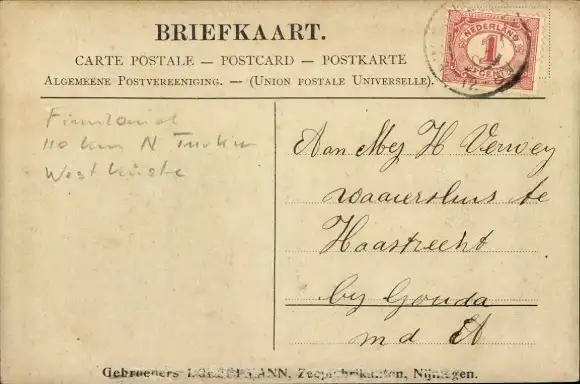 BRIEFKAART.
CARTE POSTALE — POSTCARD — POSTKARTE
ALGEMEENE POSTVEREENIGING. — (UNION POSTALE UNIVERSELLE).
NEDERLAND
1
Finnland
110 km N Turku
West küste
Aan Mej H Verwey
waaiersluis te
Haastrecht
by Gouda
Gebroeders Zeepfabrikanten, Nijmegen.